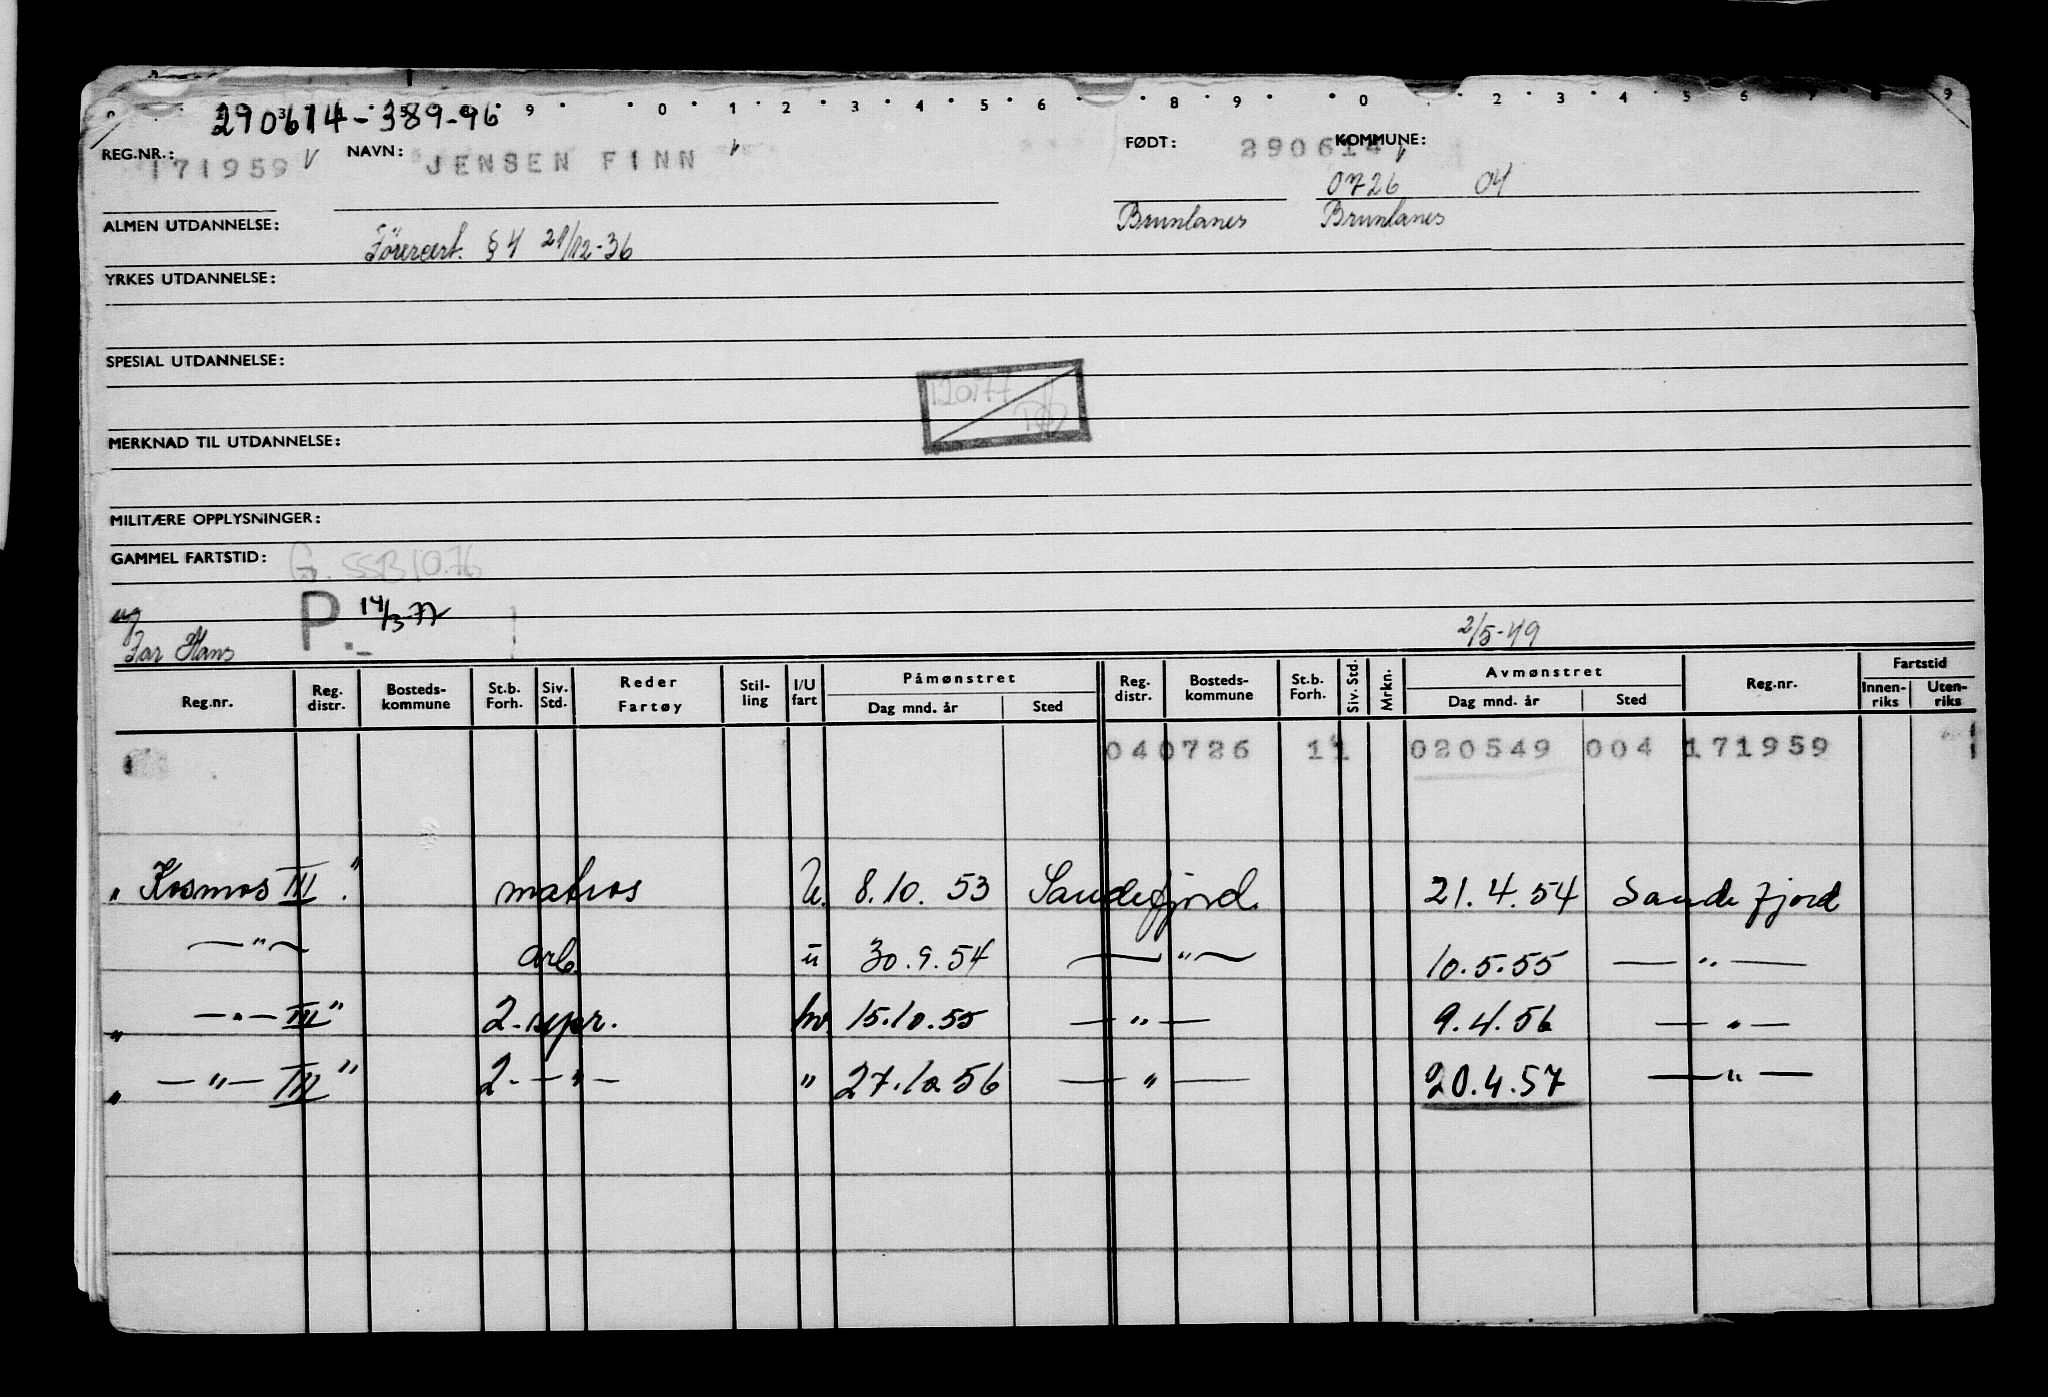 290614-389-96 9 0 1 2 3 4 5 6 8 9 0 2 3 4 5 6 7 8 9
REG.NR.: 171959 V NAVN: JENSEN FINN FØDT: 290614 KOMMUNE:
0726 04
ALMEN UTDANNELSE: Brunlanes Brunlanes
Förercert. § 4 21/12-36
YRKES UTDANNELSE:
SPESIAL UTDANNELSE:
120177
MERKNAD TIL UTDANNELSE:
MILITÆRE OPPLYSNINGER:
GAMMEL FARTSTID: G. SSB 10.76
ug P. 14/3-77
Far Hans 2/5-49
Reg.nr. Reg. distr. Bosteds-kommune St.b. Forh. Siv. Std. Reder Fartøy Stil-ling I/U fart Påmønstret Dag mnd. år Sted Reg. distr. Bosteds-kommune St.b. Forh. Siv. Std. Mrkn. Avmønstret Dag mnd. år Sted Reg.nr. Fartstid Innen-riks Uten-riks
040726 11 020549 004 171959
"Kosmos III" matros U. 8.10.53 Sandefjord 21.4.54 Sandefjord
—"— arb. u 30.9.54 —"— 10.5.55 —"—
" —"— III" 2-spr. hv. 15.10.55 —"— 9.4.56 —"—
" —"— III" 2-—"— " 27.10.56 —"— 20.4.57 —"—